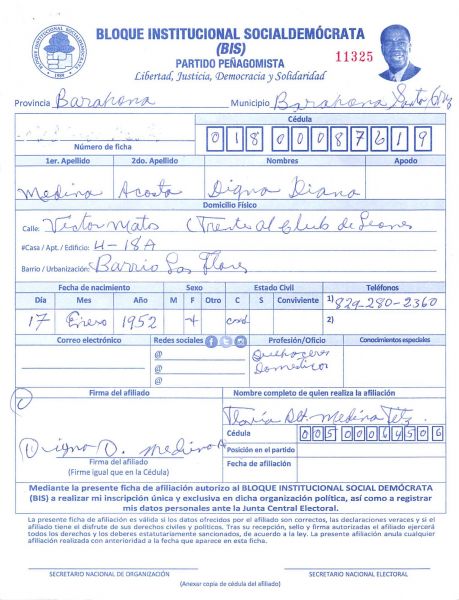 BLOQUE INSTITUCIONAL SOCIALDEMÓCRATA
(BIS)
PARTIDO PEÑAGOMISTA
Libertad, Justicia, Democracia y Solidaridad
11325
BLOQUE INSTITUCIONAL SOCIALDEMÓCRATA
BIS
1989
Provincia Barahona Municipio Barahona Santa Cruz
Número de ficha
Cédula
01800087619
1er. Apellido 2do. Apellido Nombres Apodo
Medina Acosta Digna Diana
Domicilio Físico
Calle: Victor Matos (Frente al Club de Leones
#Casa / Apt. / Edificio: 4-18A
Barrio / Urbanización: Barrio Las Flores
Fecha de nacimiento Sexo Estado Civil Teléfonos
Día Mes Año M F Otro C S Conviviente 1) 829-280-2360
17 Enero 1952 2)
Correo electrónico Redes sociales Profesión/Oficio Conocimientos especiales
@ Quehaceres
@ Domesticos
@
Firma del afiliado Nombre completo de quien realiza la afiliación
Medina
Cédula 00500064506
Digna D. Medina A
Posición en el partido
Firma del afiliado
(Firme igual que en la Cédula)
Fecha de afiliación
Mediante la presente ficha de afiliación autorizo al BLOQUE INSTITUCIONAL SOCIAL DEMÓCRATA
(BIS) a realizar mi inscripción única y exclusiva en dicha organización política, así como a registrar
mis datos personales ante la Junta Central Electoral.
La presente ficha de afiliación es válida si los datos ofrecidos por el afiliado son correctos, las declaraciones veraces y si el
afiliado tiene el disfrute de sus derechos civiles y políticos. Tras su recepción, sello y firma autorizadas el afiliado ejercerá
todos los derechos y los deberes estatutariamente sancionados, de acuerdo a la ley. La presente afiliación anula cualquier
afiliación realizada con anterioridad a la fecha que aparece en esta ficha.
SECRETARIO NACIONAL DE ORGANIZACIÓN SECRETARIO NACIONAL ELECTORAL
(Anexar copia de cédula del afiliado)